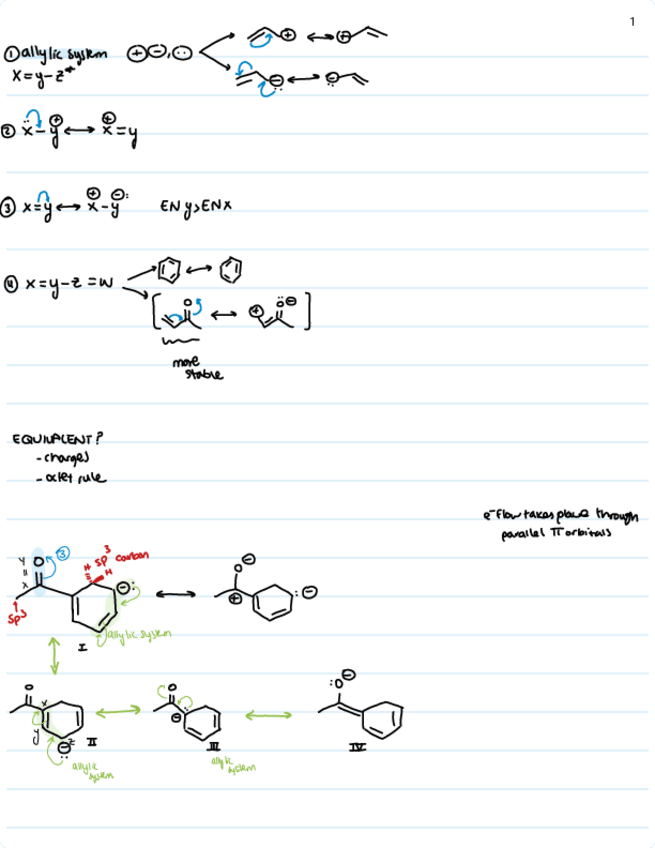 1
① allylic system ⊕⊖,
x=y-z*
② x-y⊕ ↔ x⊕=y
③ x=y ↔ x⊕-y⊖: EN y>EN x
④ x=y-z=w
O
O⊖
more
stable
EQUIVALENT?
-charges
-octet rule
e⁻ flow takes place through
parallel π orbitals
y
=
x
O
③
H
sp³ carbon
H
sp³
⊖:
allylic system
I
O⊖
⊕
:⊖
O
x
y
⊖z
II
allylic
system
O
⊖
III
allylic
system
:O⊖
IV